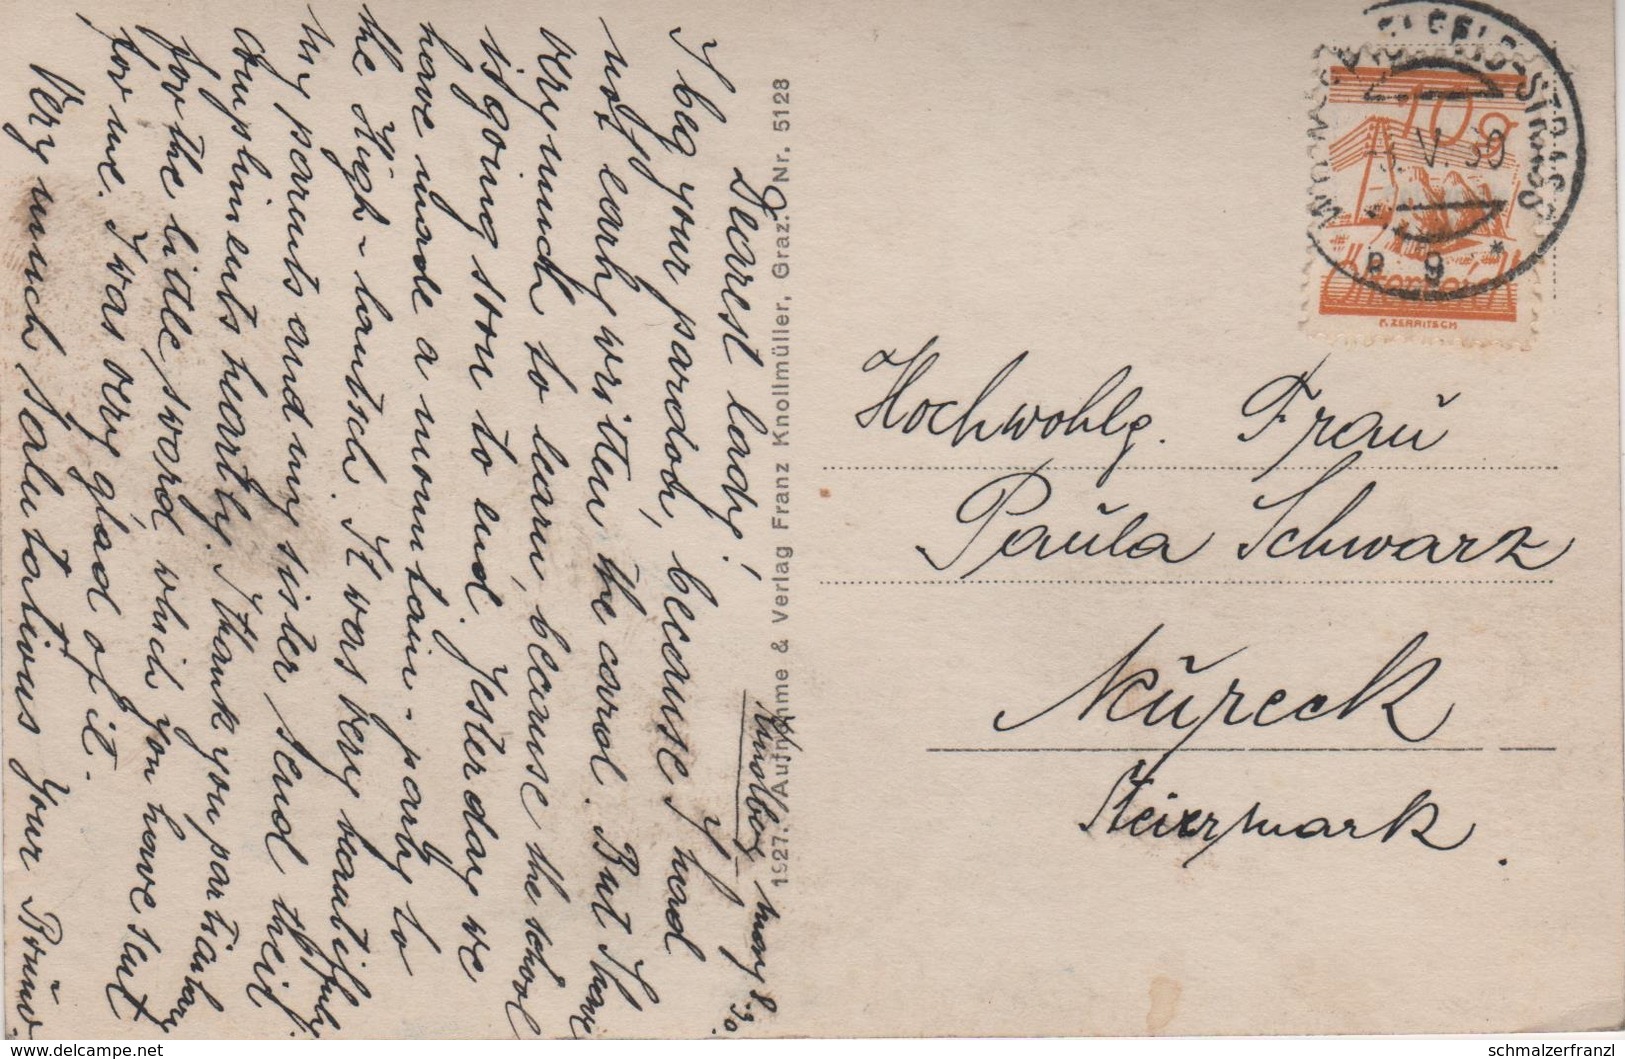 Windlbg, may 8. '30.
Dearest lady!
I beg your pardod, because I had
not early written the carod. But I have
very much to learn, because the school
is going ston to end. Yesterday we
have made a mountain-party to
the High-lantsch. It was very beautifuly.
My parents and my sister send their
compliments heartly. I thank you particulary
for the little sword, which you have sent
for me. I was very glad of it.
Very much salutations your Brunv.
1927. Aufnahme & Verlag Franz Knollmüller, Graz. Nr. 5128
10 g
Österreich
F. ZERRITSCH
V. 30
9
Hochwohlg. Frau
Paula Schwarz
Mureck
Steiermark.
www.delcampe.net
schmalzerfranzl